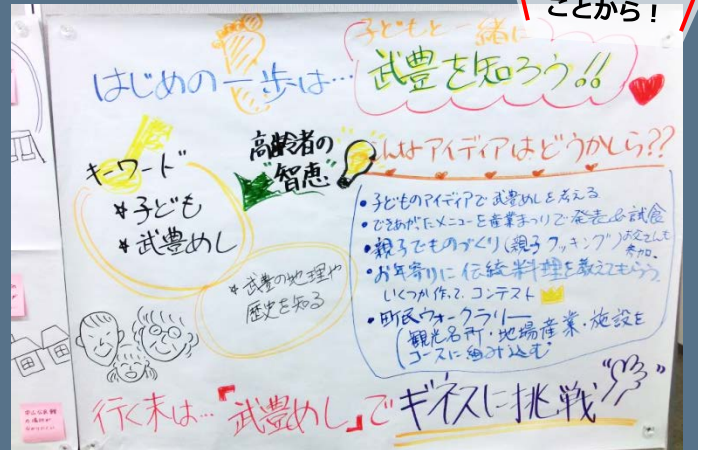 ことから！
子どもと一緒に
はじめの一歩は… 武豊を知ろう!!
キーワード
*子ども
*武豊めし
高齢者の
"智恵"
こんなアイディアはどうかしら??
・子どものアイディアで武豊めしを考える
・できあがったメニューを産業まつりで発表&試食
・親子でものづくり(親子クッキング)お父さんも
参加。
・お年寄りに伝統料理を教えてもらう
いくつか作って、コンテスト
・町民ウォークラリー
(観光名所・地場産業・施設を
コースに組み込む
*武豊の地理や
歴史を知る
行く末は…『武豊めし』でギネスに挑戦